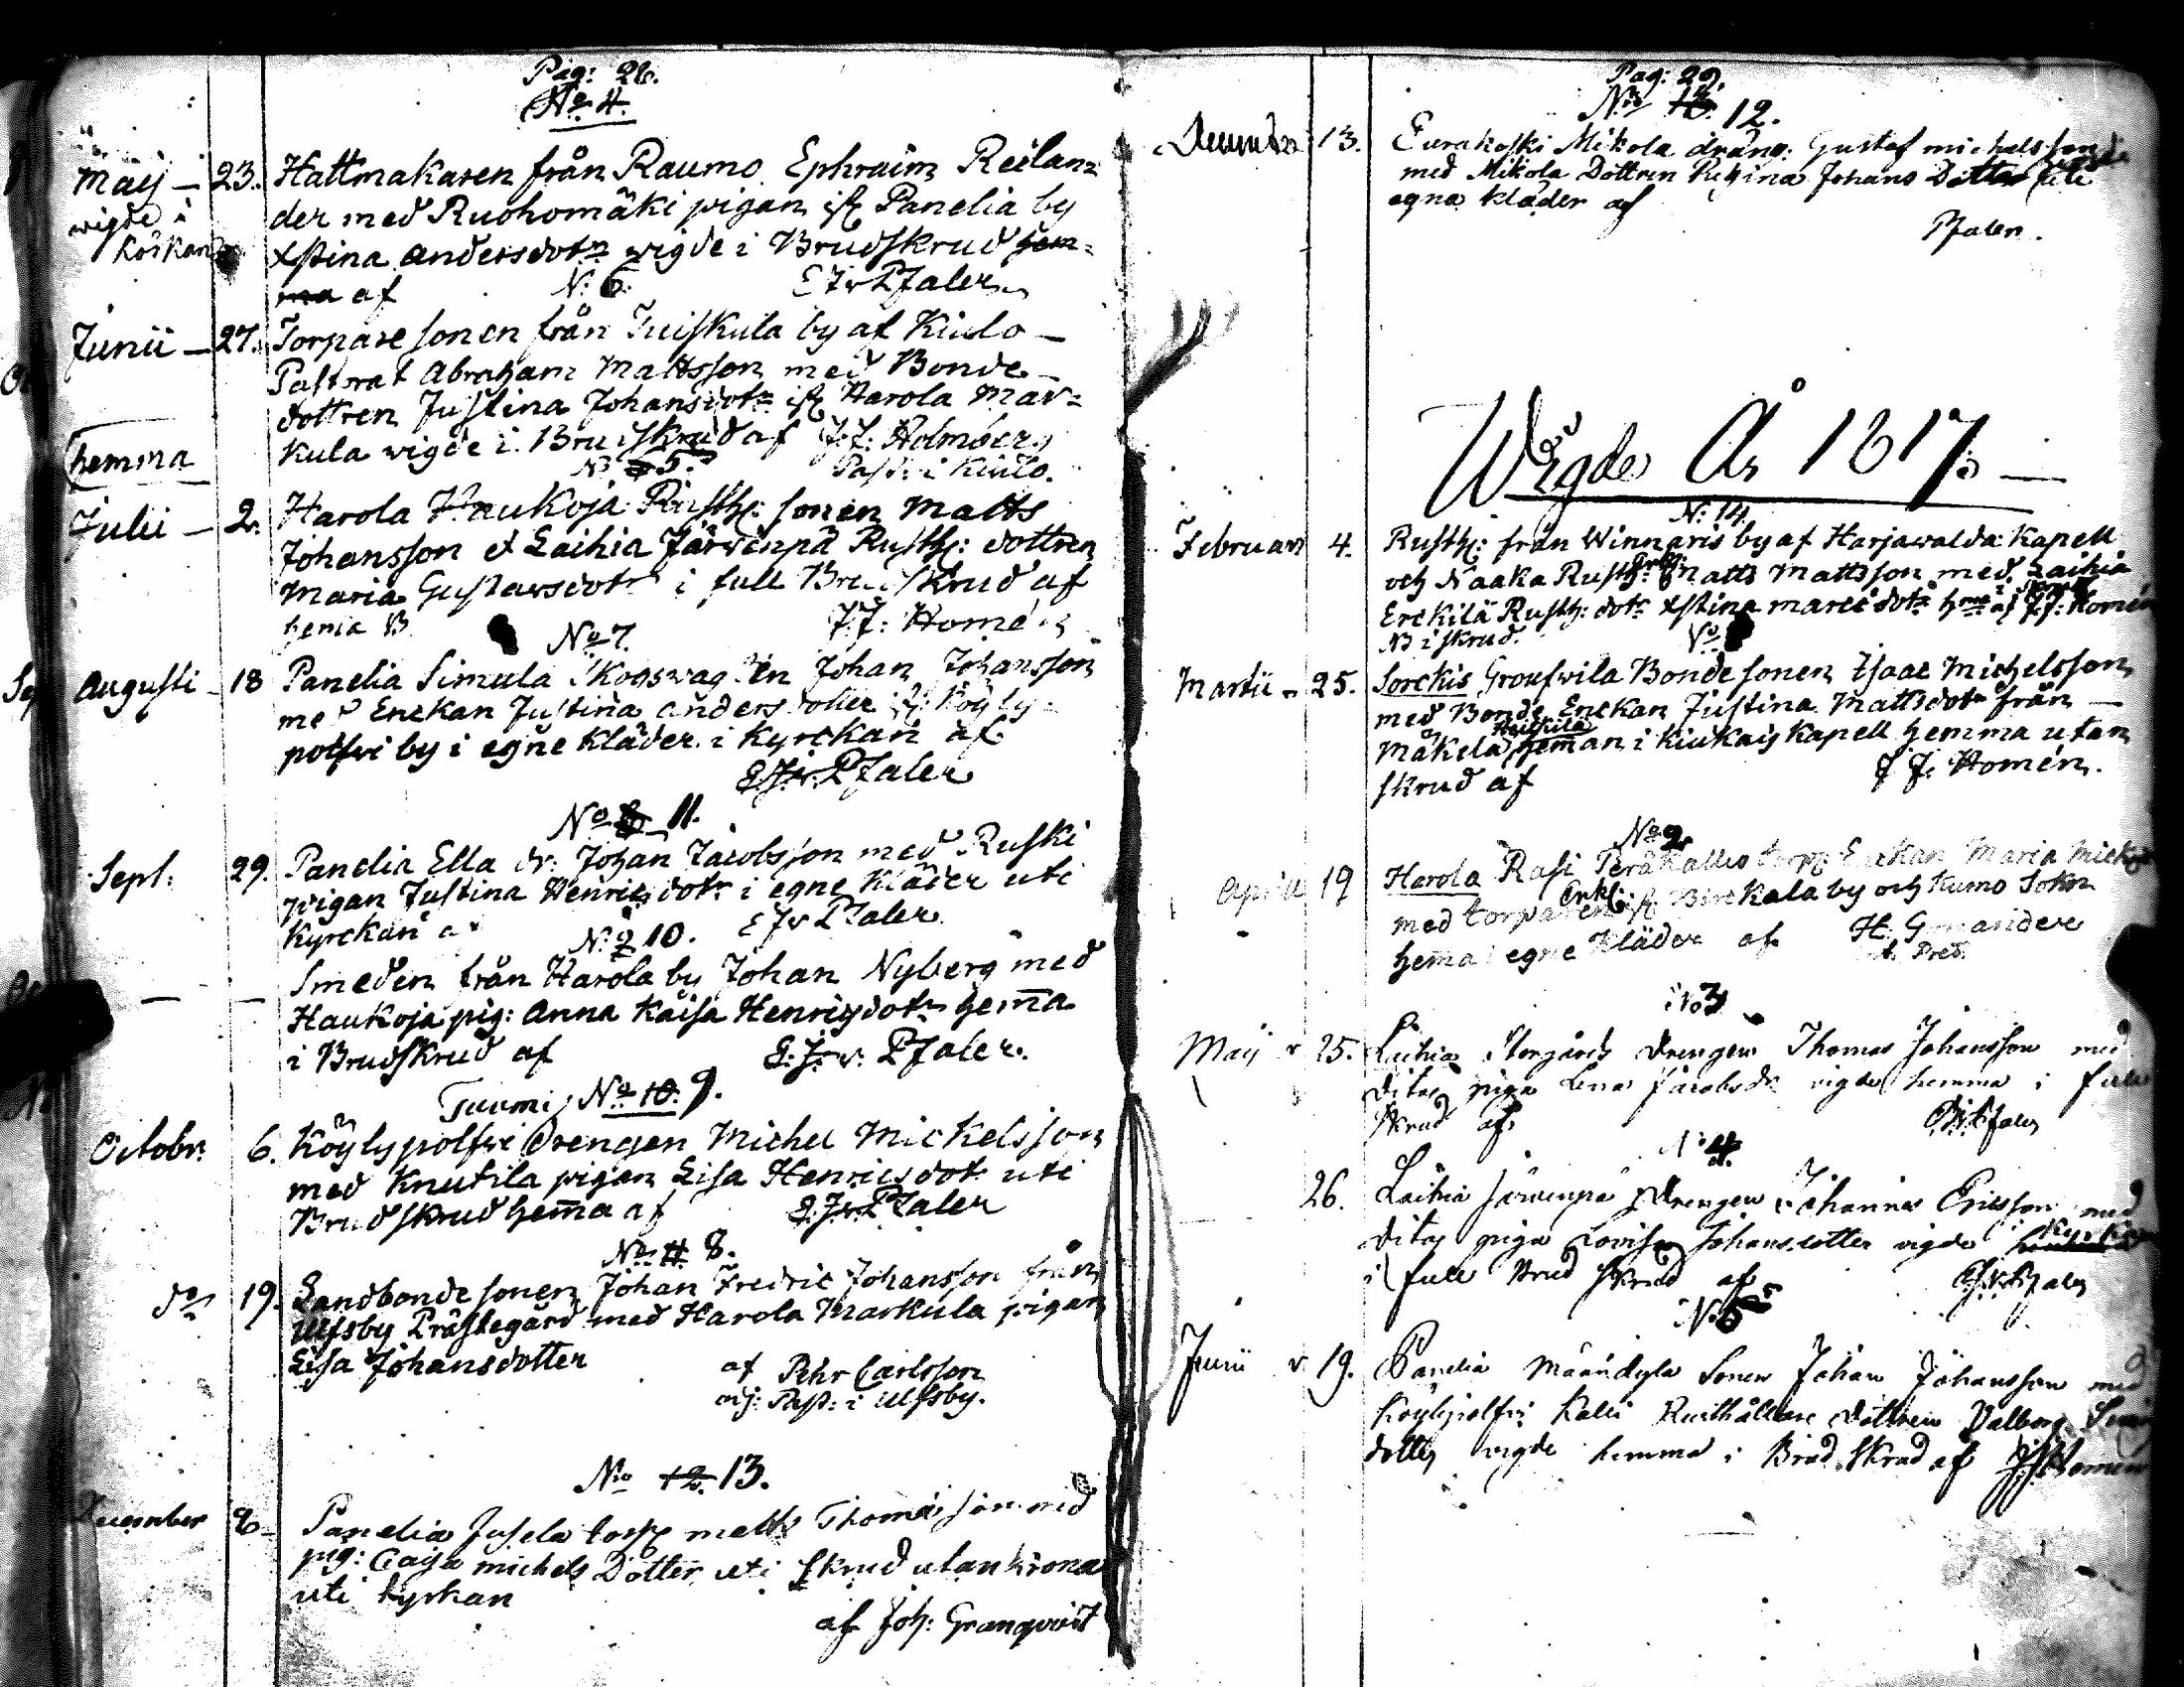 Pag: 28.
No 4.
Maij – 23. Hattmakaren från Raumo Ephraim Reilan=
wigde i
der med Ruohomäki pigan ifr Panelia by
körkan
xstina Andersdotr wigde i Brudskrud hem=
ma af E J v Pfaler
N: 6.
Junii – 27. Torpare sonen från Tuiskula by af Kiulo –
Pastorat Abraham Mattsson med Bonde –
dottren Justina Johansdotr ifr Harola Mar=
hemma
kula wigde i Brudskrud af J: J: Holmberg
No 5. Past: i Kiulo.
Julii – 2. Harola Haukoja Rusth: sonen Matts
Johansson et Laihia Järvenpä Rusth: dottren
Maria Gustavsdotr i full Brudskrud af
J: J: Homén
No 7.
Augusti – 18 Panelia Simula Skogsvagten Johan Johansson
med Enckan Justina Andersdotter ifr Köyly=
polfvi by i egne kläder i Kyrckan af
E. J. v. Pfaler
No 8 11.
Sept: 29. Panelia Ella dr: Johan Jacobsson med Ruski
pigan Justina Henricsdotr i egne kläder uti
Kyrckan af E J v Pfaler
No 9 10.
– – Smeden från Harola by Johan Nyberg med
Haukoja pig: Anna Kaisa Henrigsdotr hemma
i Brudskrud af E. J. v. Pfaler.
Tuumi No 10. 9.
Octobr: 6. Köylypolfvi drengen Michel Mickelsson
med Knutila pigan Lisa Henricsdotr uti
Brudskrud hemma af E. J. v. Pfaler
No 11 8.
do 19. Landbonde sonen Johan Fredric Johansson från
Ulfsby Prästegård med Harola Markula pigan
Lisa Johansdotter af Pehr Carlsson
adj: Past: i Ulfsby.
No 12. 13.
December 8 Panelia Jusela torp Matts Thomasson med
pig: Caisa Michels Dotter uti skrud utan krona
uti kyrkan
af Joh: Granqvist
Pag: 29.
No 13. 12.
December 13. Eurakoski Mikola dräng: Gustaf Michelsson
med Mikola Dottren Regina Johans Dotter uti
egna kläder af
Pfaler.
Wigde År 1817.
N: 14
Februari 4. Rusth: från Winnaris by af Harjawalda Kapell
och Naaka Rusth: Matts Mattsson med Laihia
Erckilä Rusth: dotr xstina Marcidotr af J: J: Homén
i skrud.
No
Martii – 25. Sorckis Groufwila Bonde sonen Isaac Michelsson
med Bonde Enckan Justina Mattsdotr från –
Mäkela hemman i Kiukais Kapell hemma utan
skrud af J. J. Homén.
No 2.
Aprill 19 Harola Rasi Peräkallio torp: Enckan Maria
med torparen Enkl: ifr Birckala by och Kumo Sokn
hemma i egne kläder af H: Gumander
v. Pred.
No 3
Maij 25. Laihia Storgårds Drengen Thomas Johansson med
Ditos piga Lena Jacobsdr vigde hemma i full
skrud af
No 4.
26. Laihia Järvenpä Drengen Johannes Ericsson med
Ditos piga Lovisa Johansdotter vigde Kyrkan
i full Brud skrud af
No 5
Junii 19. Panelia Sonen Johan Johansson med
Köylypolfvi Kalli Rusthållare dottren Valborg
dotter vigde hemma i Brud skrud af J: J: Homén